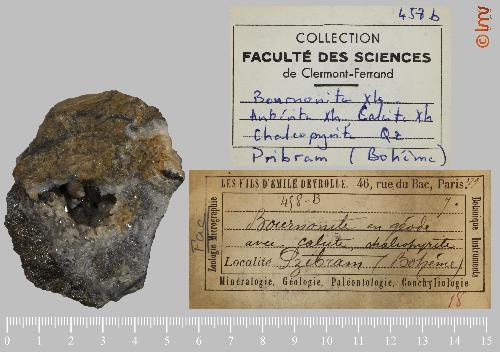 458 b
COLLECTION
FACULTÉ DES SCIENCES
de Clermont-Ferrand
Bournonite Xls
Ankérite Xls Calcite Xls
Chalcopyrite Qz
Pribram (Bohême)
LES FILS D'EMILE DEYROLLE, 46, rue du Bac, Paris
458-B
Bournonite en géode
avec calcite, chalcopyrite
Localité Pzibram (Bohême)
Minéralogie, Géologie, Paléontologie, Conchyliologie
18
Zoologie Micrographie
Botanique Instruments
Fac
0 1 2 3 4 5 6 7 8 9 10 11 12 13 14 15